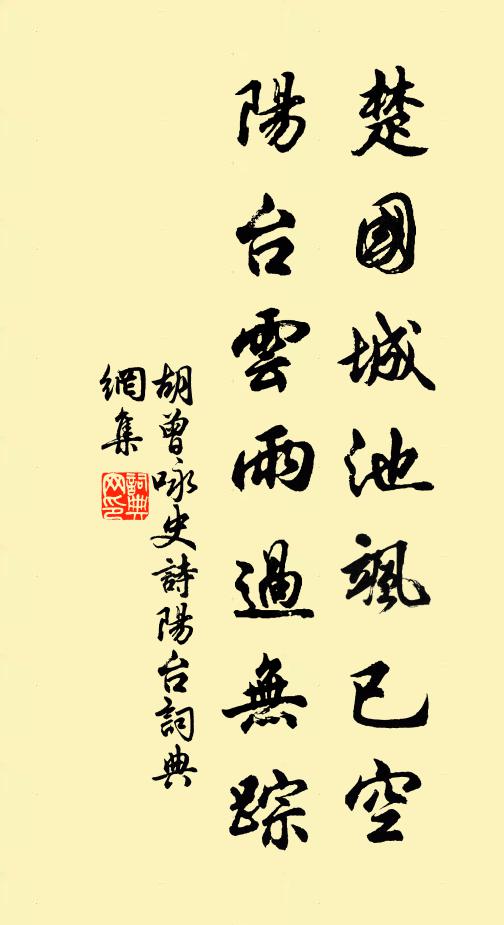 楚國城池颯已空
陽台雲雨過無踪
胡曾咏史詩陽台詞典
網集
詞典
网印